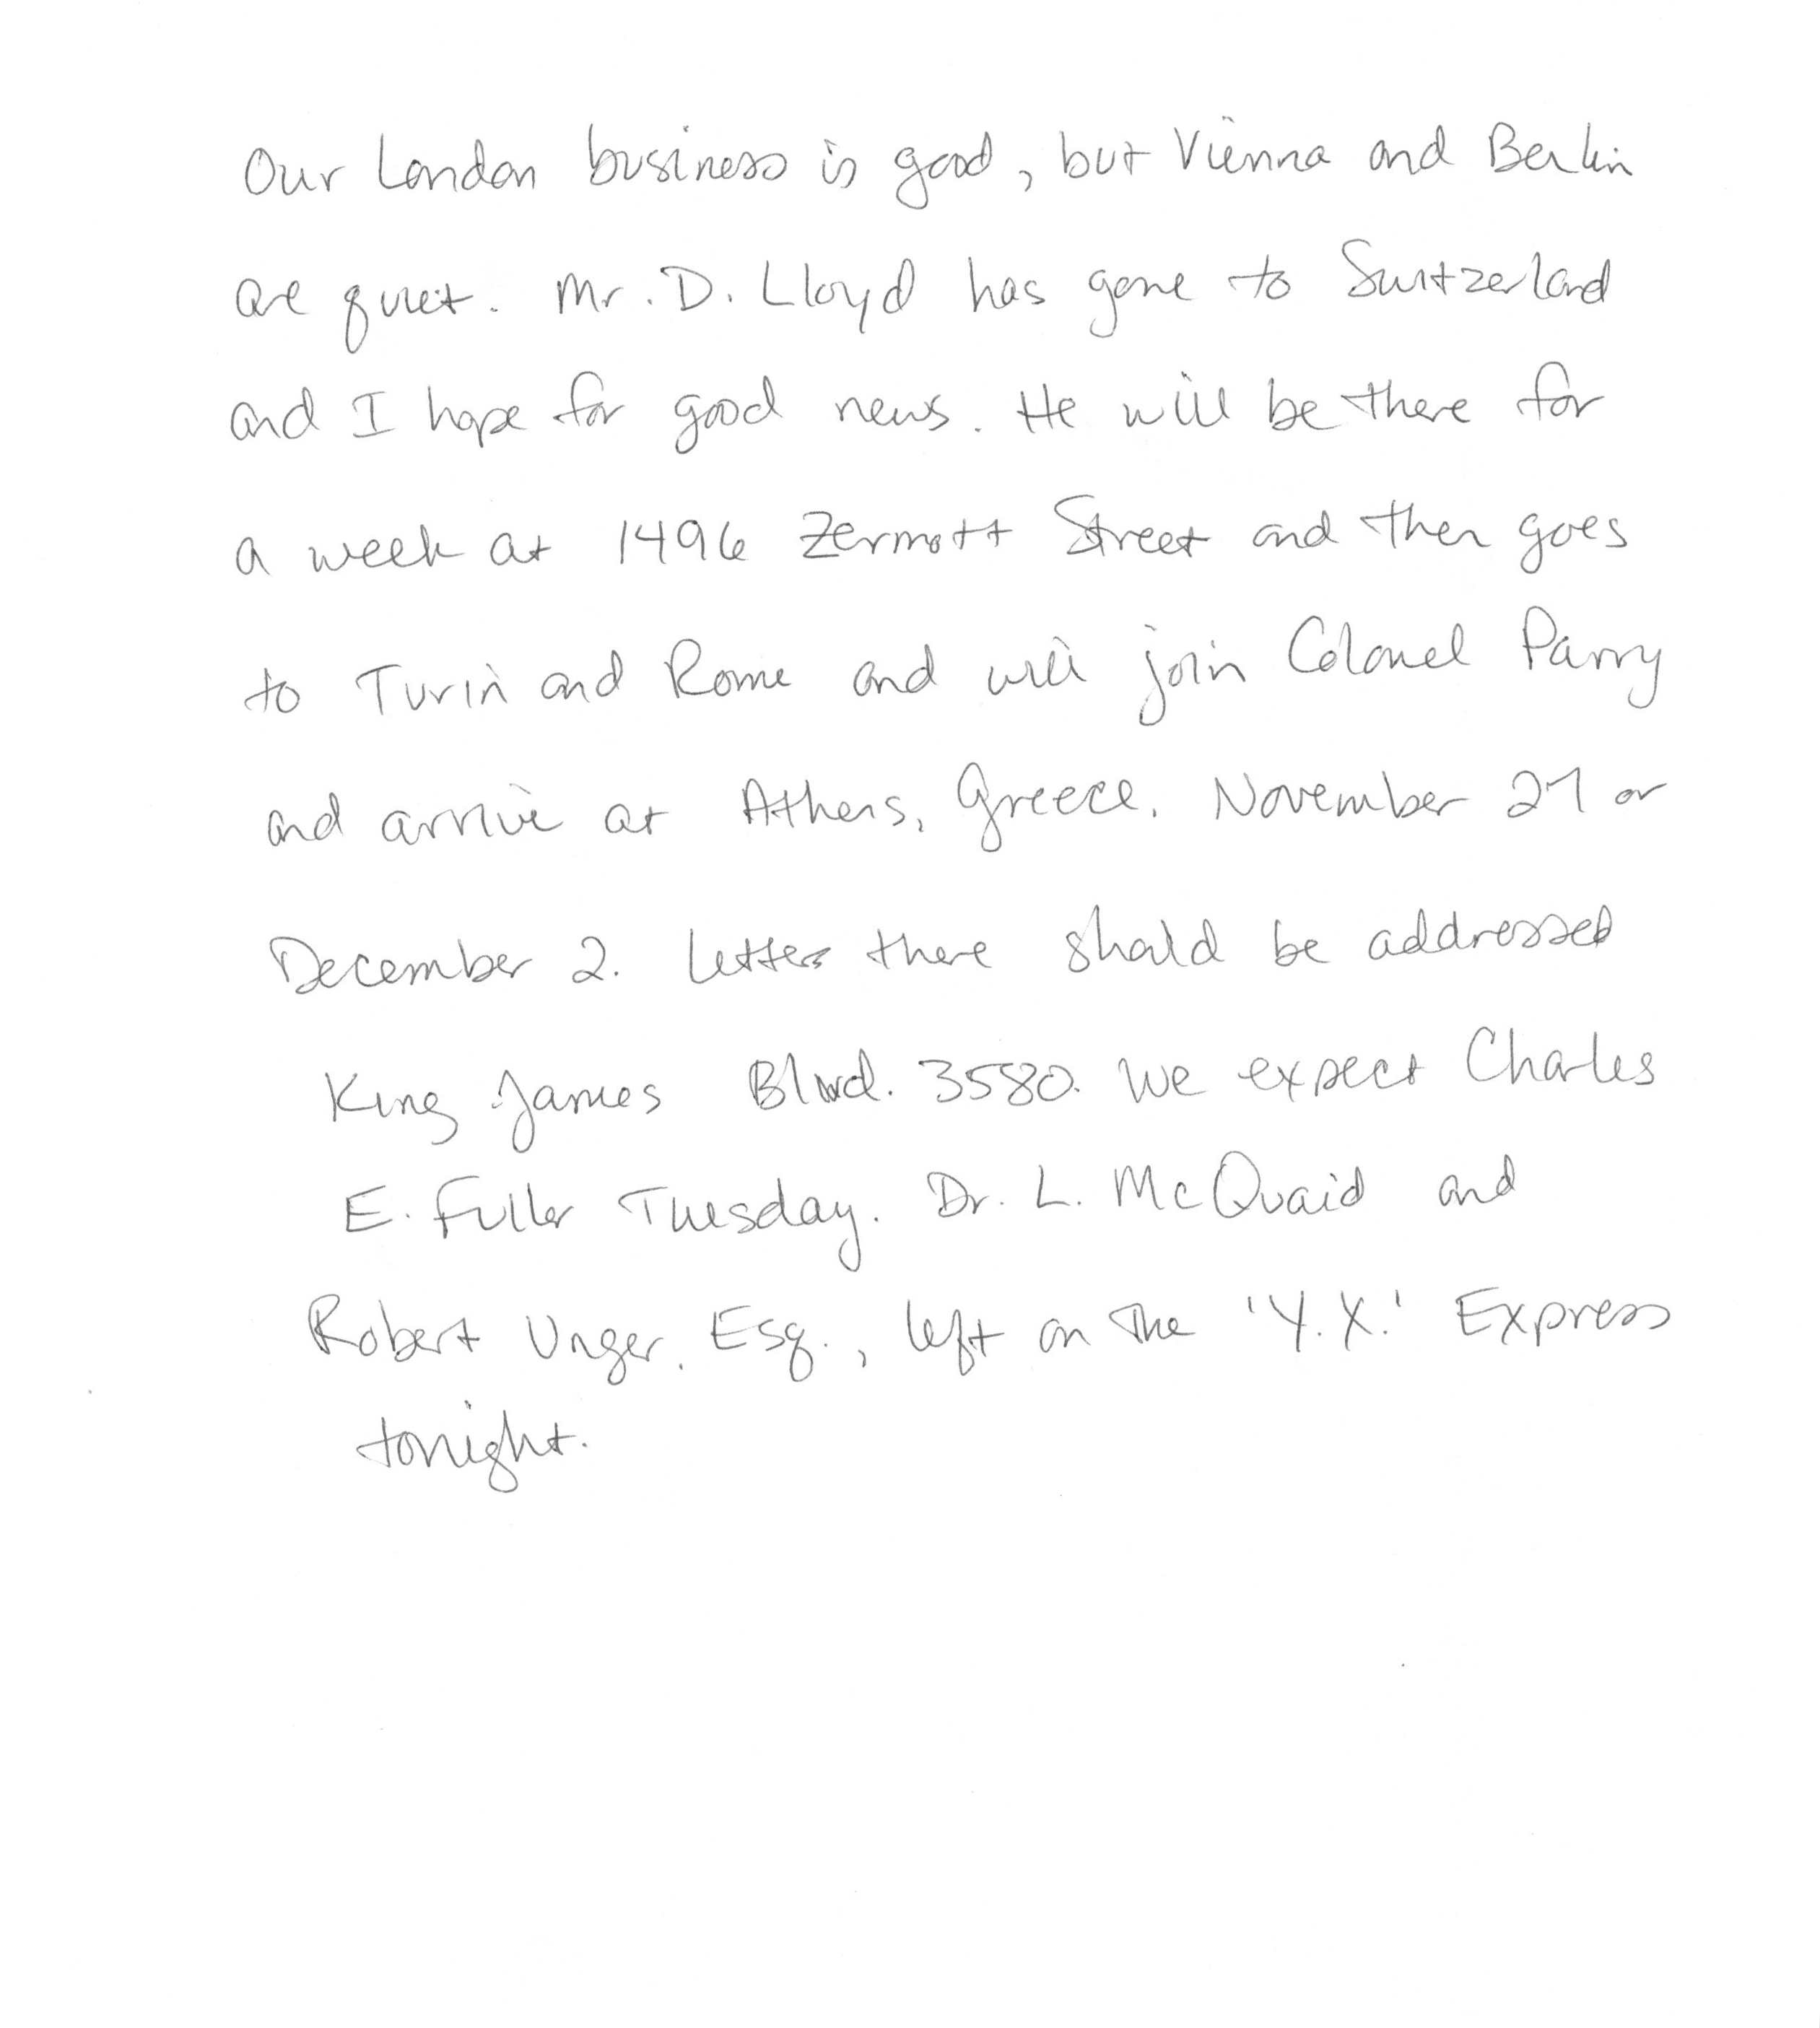 Our London business is good, but Vienna and Berlin
are quiet. Mr. D. Lloyd has gone to Switzerland
and I hope for good news. He will be there for
a week at 1496 Zermott Street and then goes
to Turin and Rome and will join Colonel Parry
and arrive at Athens, Greece, November 27 or
December 2. Letters there should be addressed
King James Blvd. 3580. We expect Charles
E. Fuller Tuesday. Dr. L. McQuaid and
Robert Unger, Esq., left on the 'Y.X.' Express
tonight.